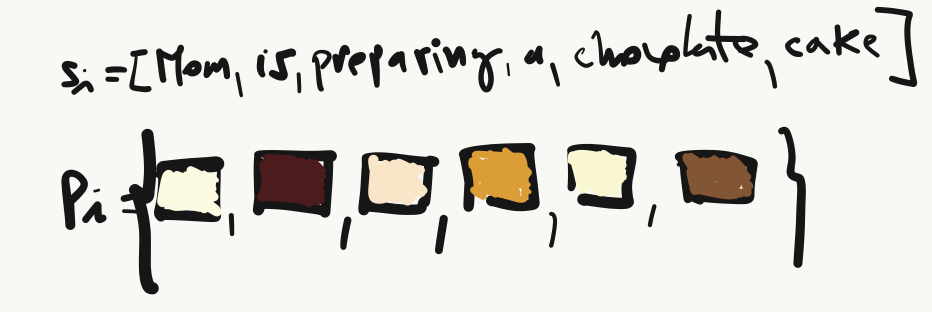 si = [Mom, is, preparing, a, chocolate, cake]
Pi = { , , , , , }